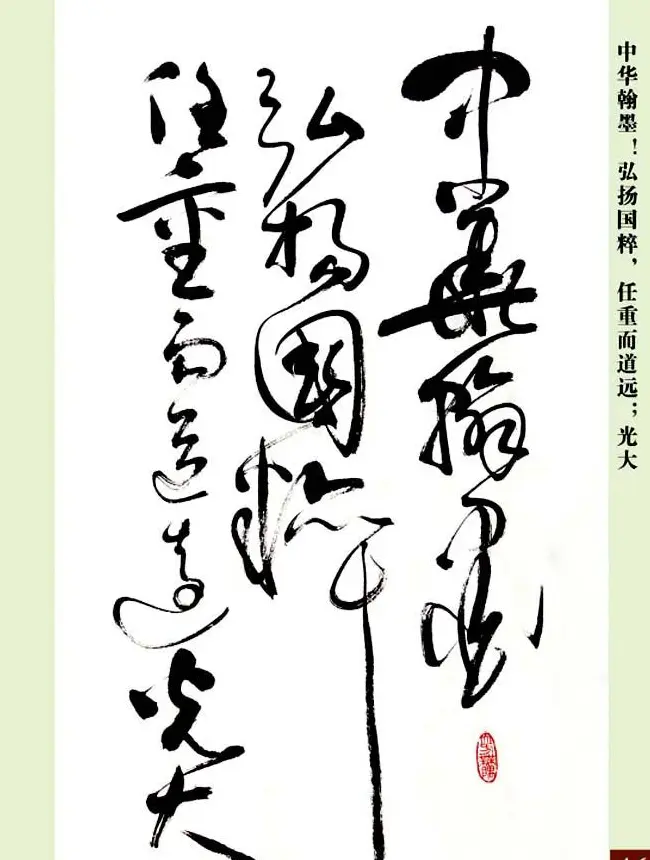 中華翰墨
弘揚國粹
任重而道遠光大
中华翰墨！弘扬国粹，任重而道远；光大